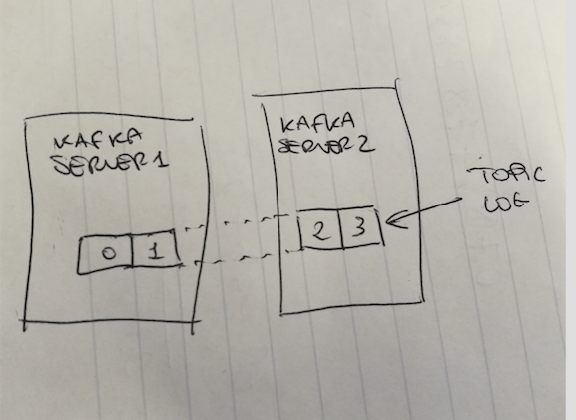 KAFKA
SERVER1
0 1
KAFKA
SERVER2
2 3
TOPIC
LOG